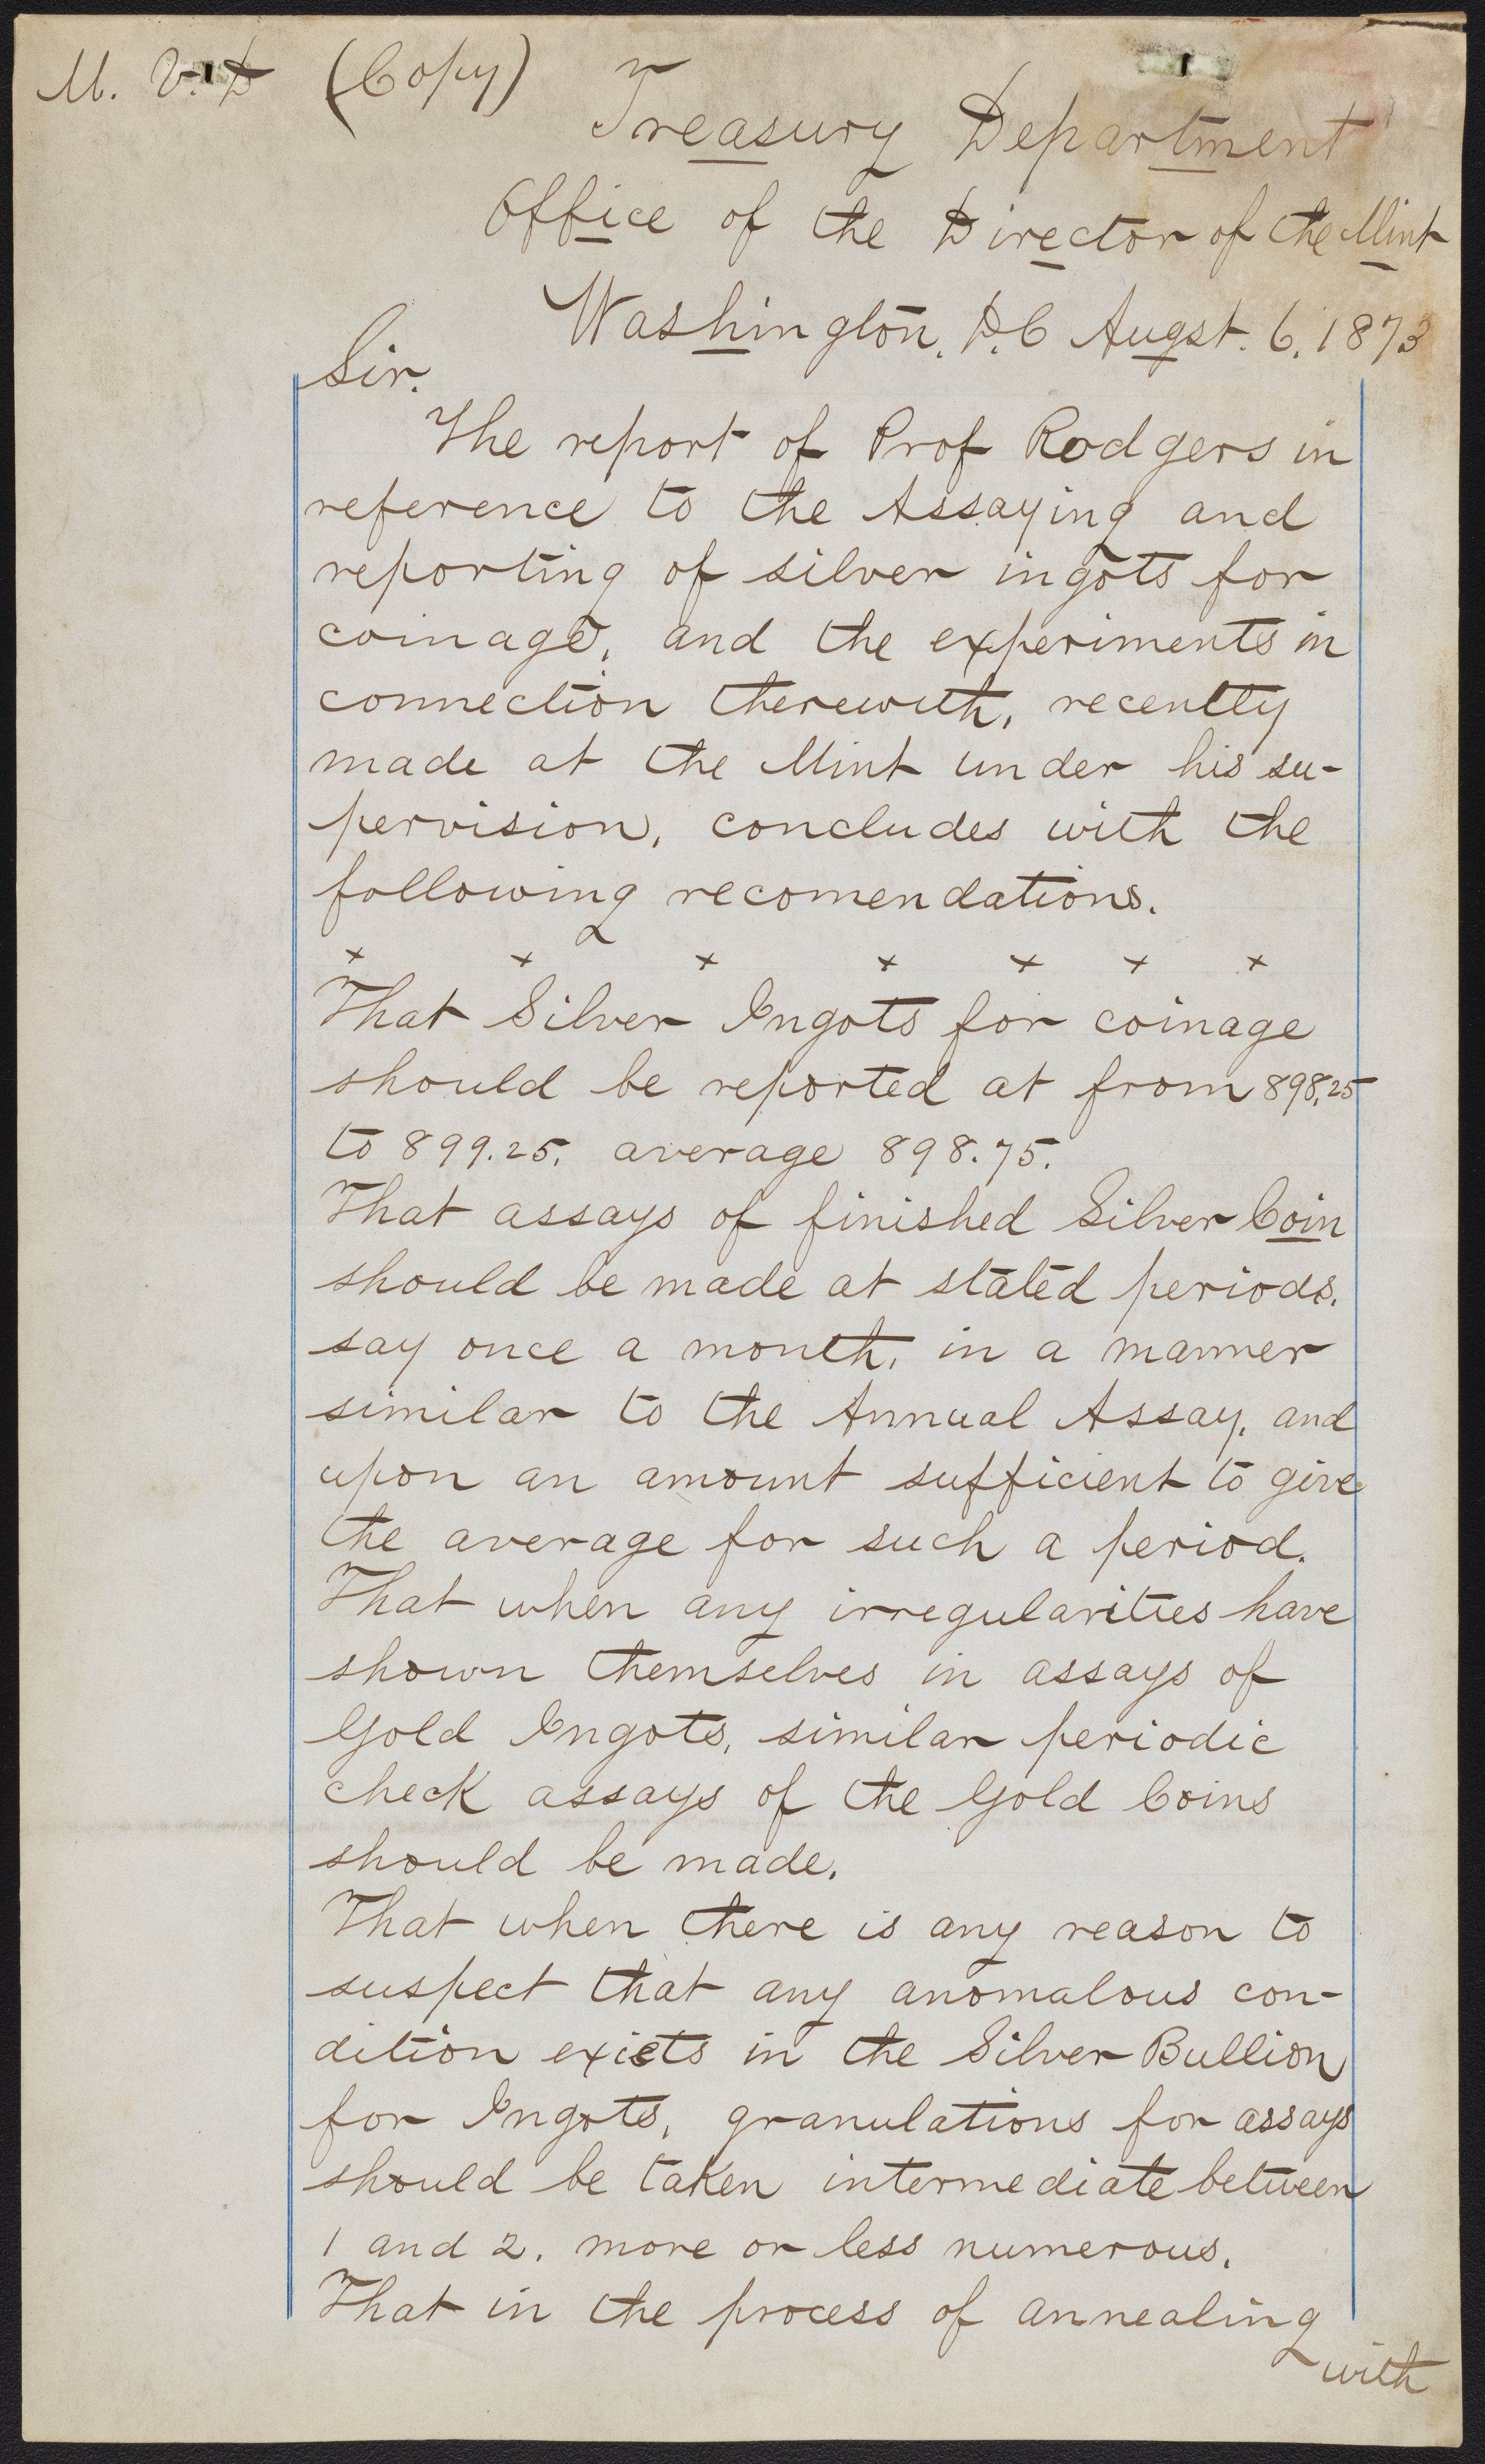 M. V. D (Copy)
Treasury Department
Office of the Director of the Mint
Washington, D.C Augst. 6, 1873
Sir.
The report of Prof Rodgers in
reference to the Assaying and
reporting of silver ingots for
coinage, and the experiments in
connection therewith, recently
made at the Mint under his su-
pervision, concludes with the
following recomendations.
x x x x x x x
That Silver Ingots for coinage
should be reported at from 898.25
to 899.25. average 898.75.
That assays of finished Silver Coin
should be made at stated periods.
say once a month, in a manner
similar to the Annual Assay, and
upon an amount sufficient to give
the average for such a period.
That when any irregularities have
shown themselves in assays of
Gold Ingots, similar periodic
check assays of the Gold Coins
should be made.
That when there is any reason to
suspect that any anomalous con-
dition exists in the Silver Bullion
for Ingots, granulations for assays
should be taken intermediate between
1 and 2. more or less numerous.
That in the process of annealing
with